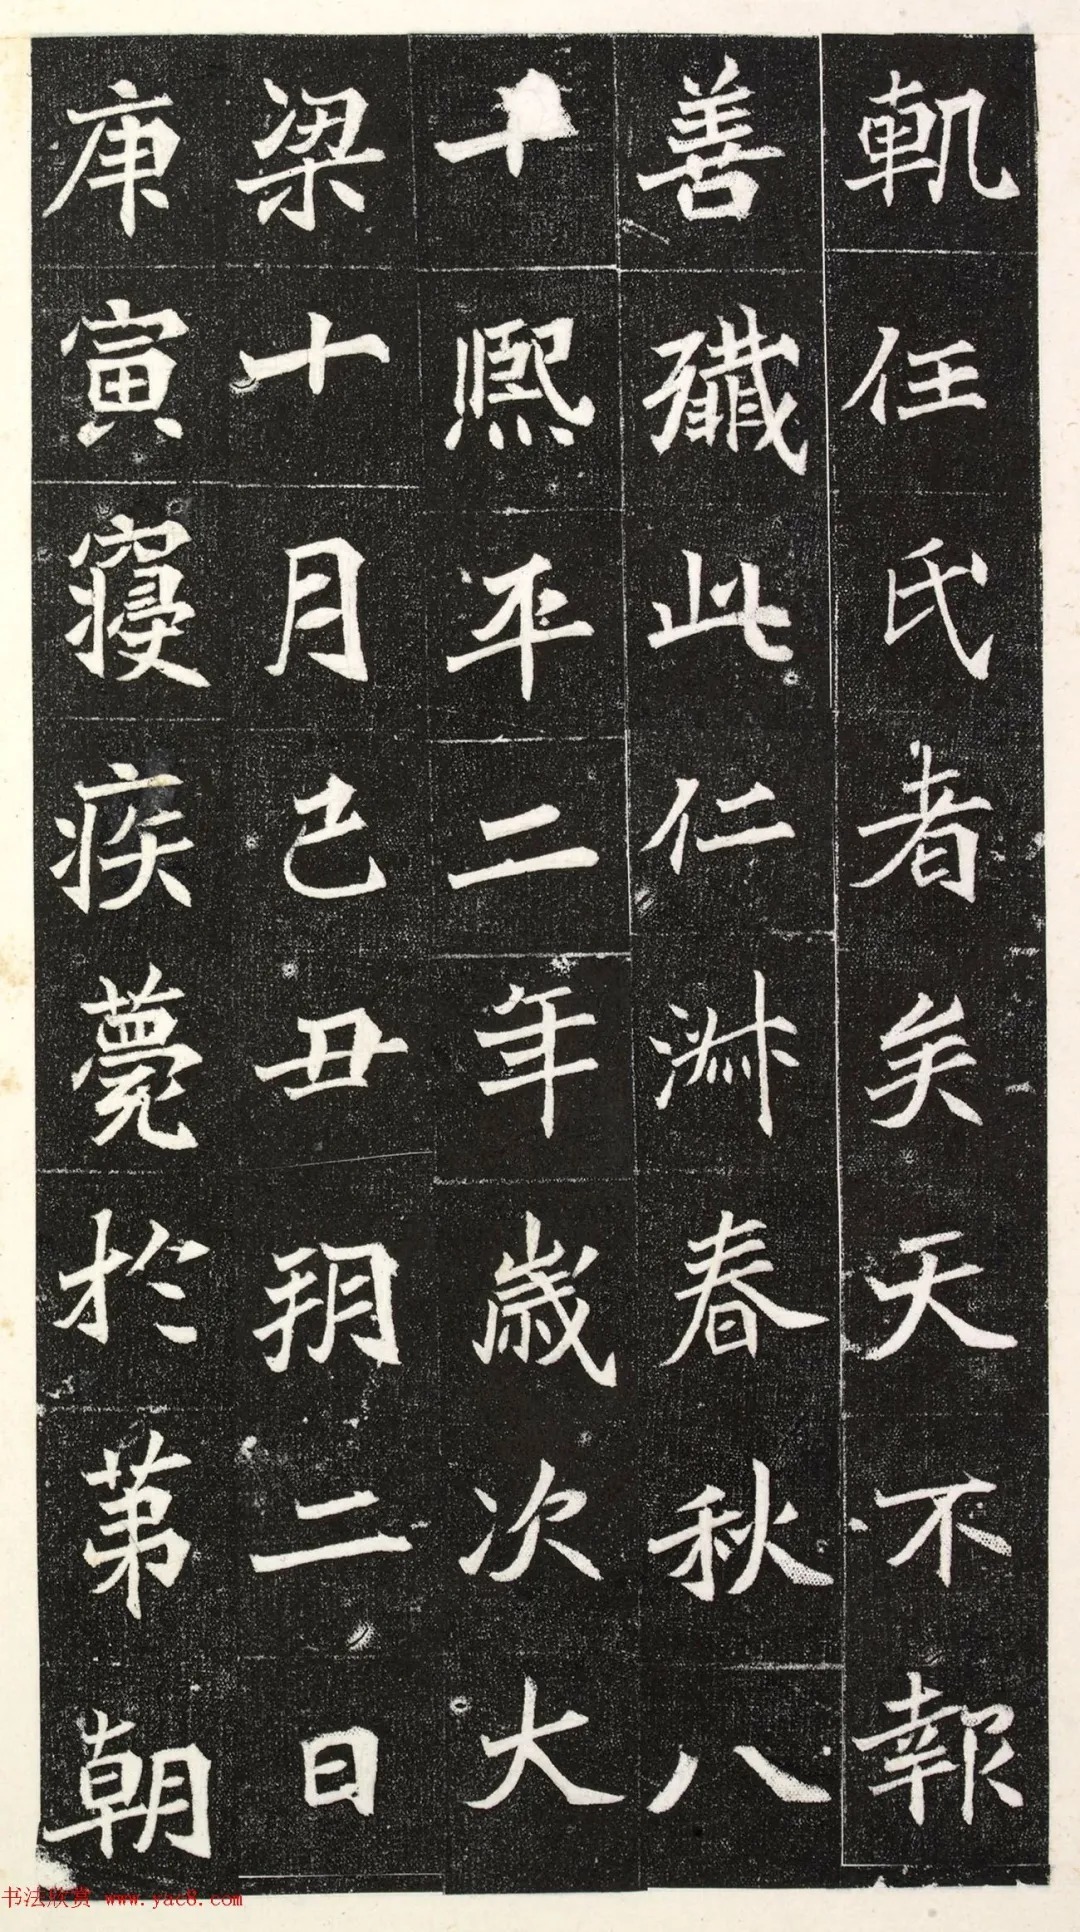 軓任氏者矣天不報
善殲此仁淋春秋八
十熙平二年歲次大
梁十月己丑朔二日
庚寅寢疾薨於第朝
书法欣赏 www.yac8.com